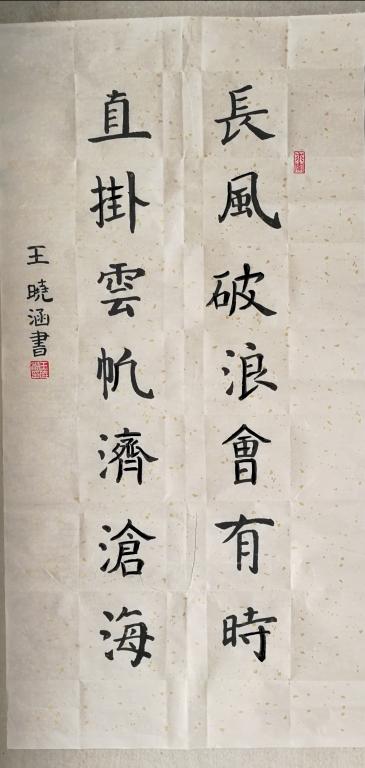 長風破浪會有時
直掛雲帆濟滄海
王曉涵書